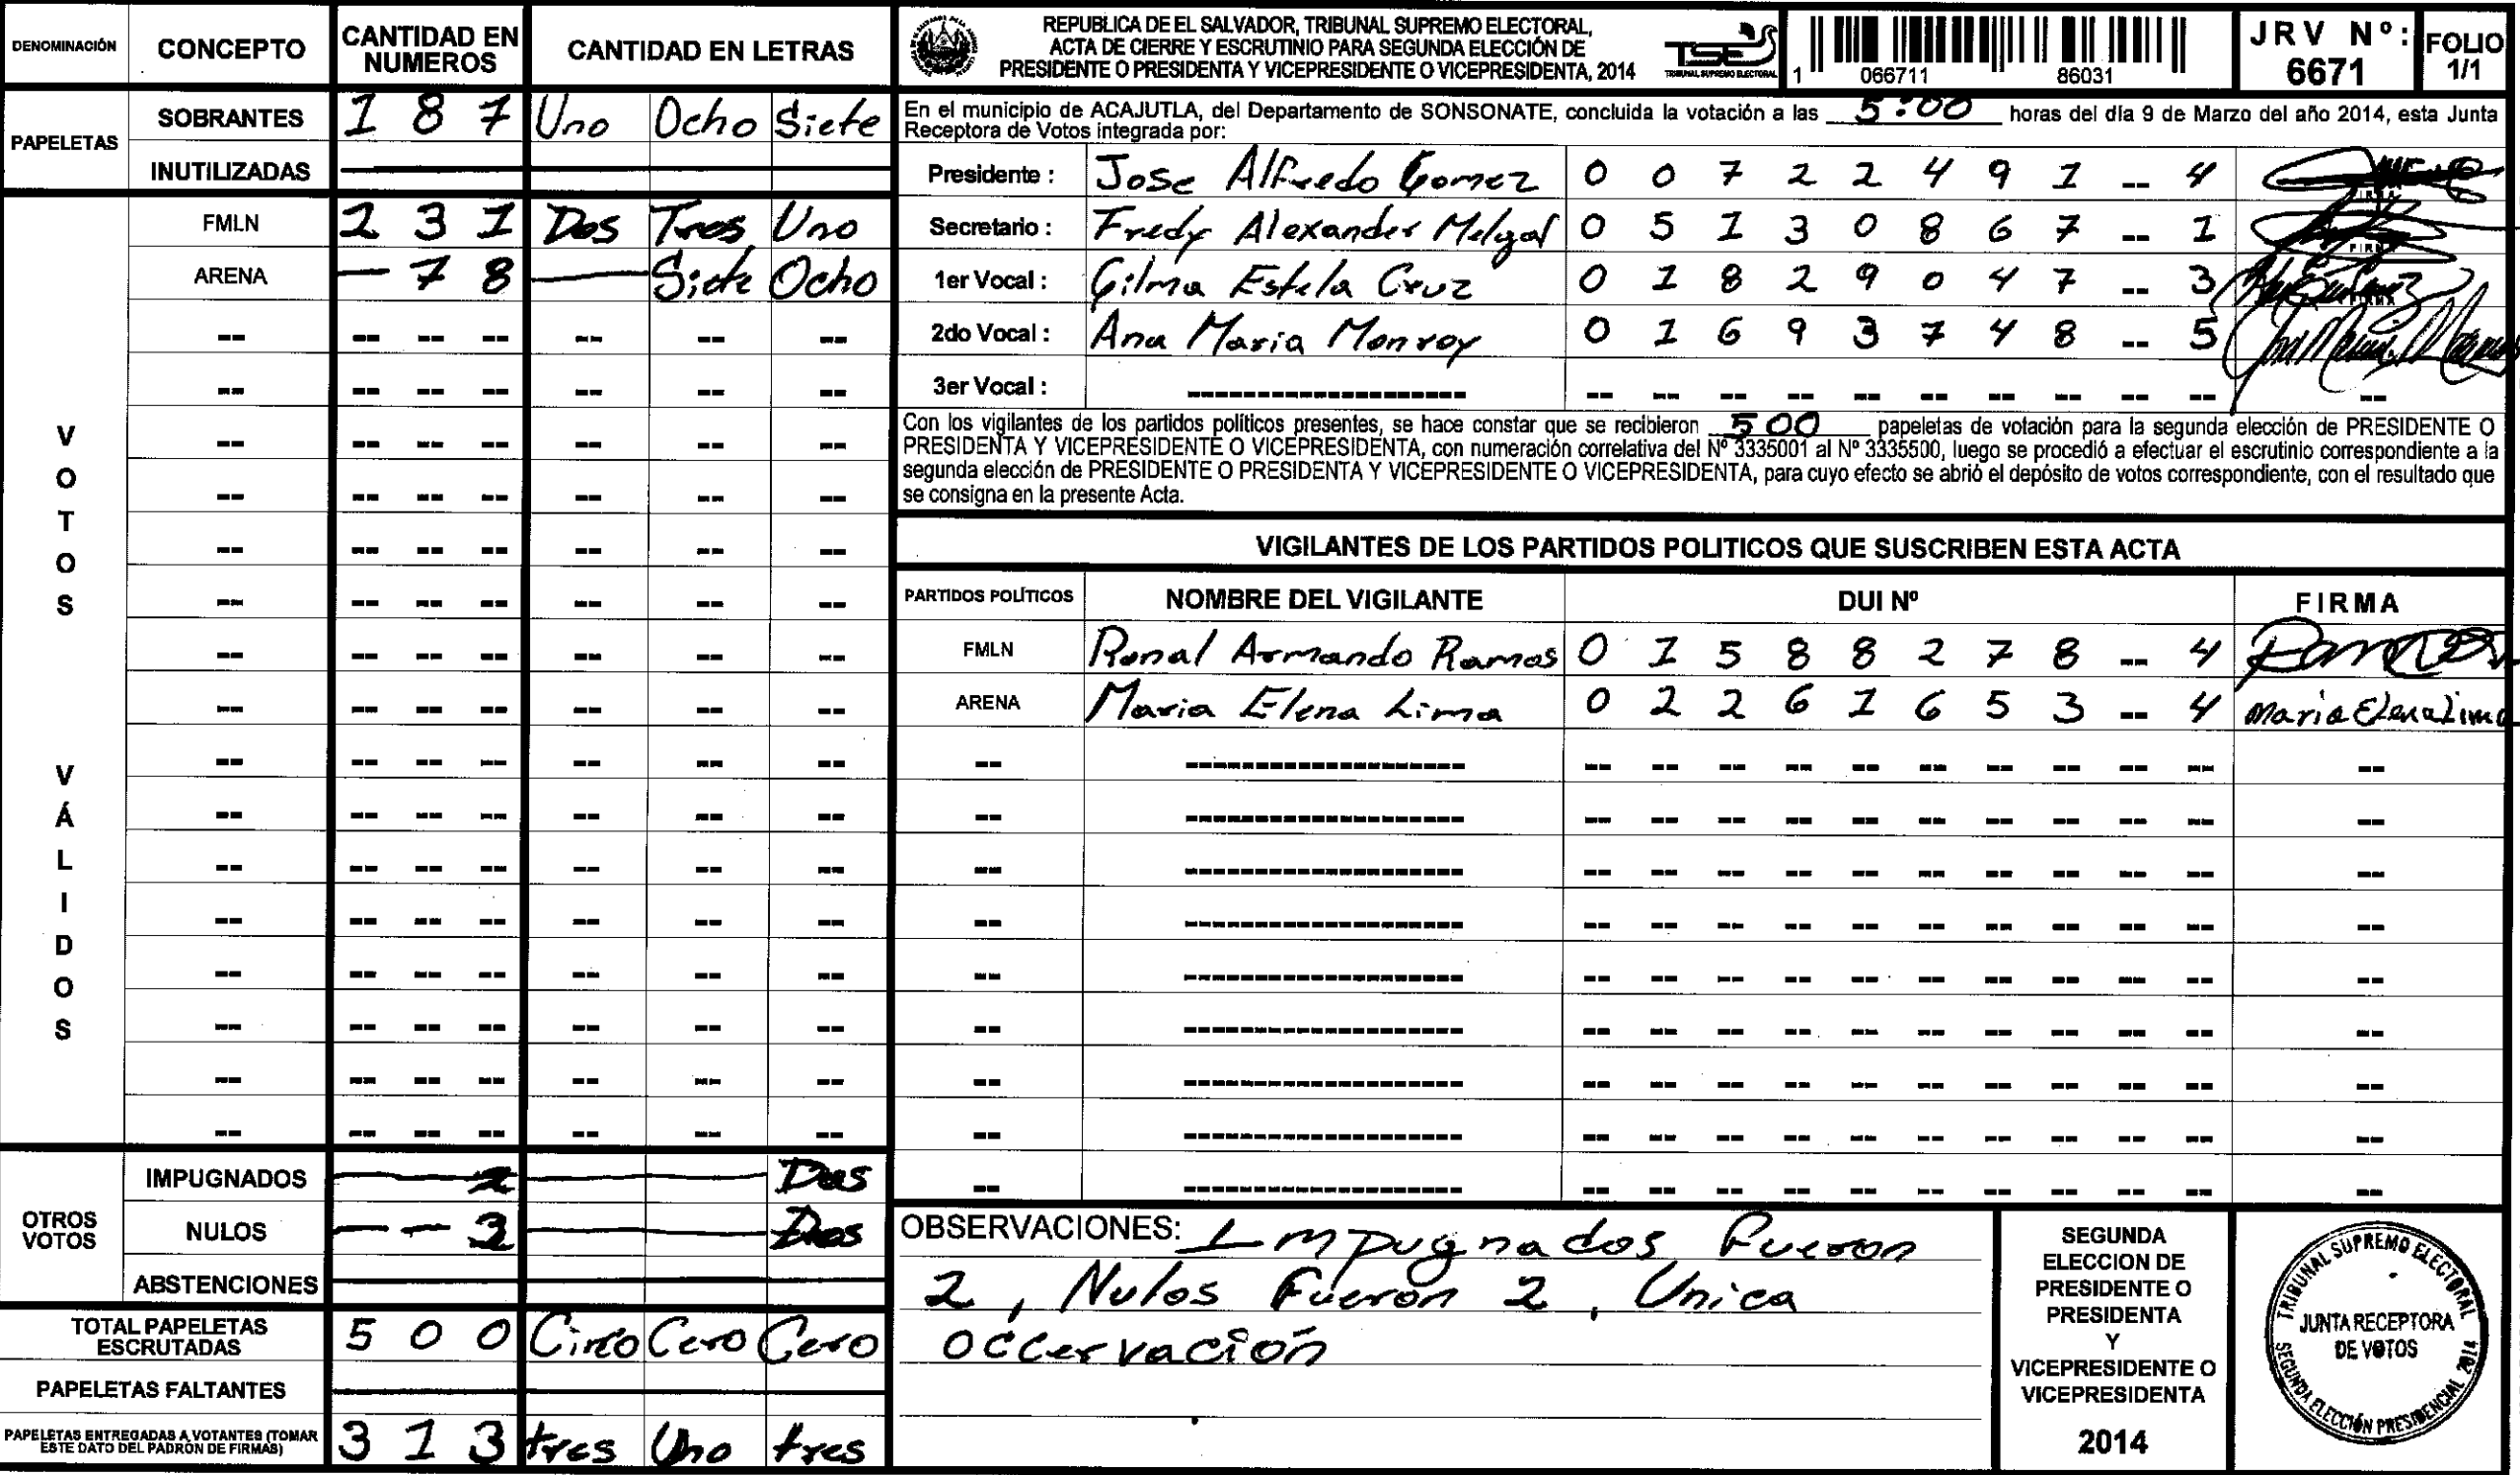 DENOMINACIÓN CONCEPTO CANTIDAD EN NUMEROS CANTIDAD EN LETRAS
PAPELETAS
SOBRANTES 1 8 7 Uno Ocho Siete
INUTILIZADAS
VOTOS VÁLIDOS
FMLN 2 3 1 Dos Tres Uno
ARENA - 7 8 Siete Ocho
OTROS VOTOS
IMPUGNADOS 2 Dos
NULOS - - 2 Dos
ABSTENCIONES
TOTAL PAPELETAS ESCRUTADAS 5 0 0 Cinco Cero Cero
PAPELETAS FALTANTES
PAPELETAS ENTREGADAS A VOTANTES (TOMAR ESTE DATO DEL PADRÓN DE FIRMAS) 3 1 3 tres Uno tres
REPUBLICA DE EL SALVADOR, TRIBUNAL SUPREMO ELECTORAL,
ACTA DE CIERRE Y ESCRUTINIO PARA SEGUNDA ELECCIÓN DE
PRESIDENTE O PRESIDENTA Y VICEPRESIDENTE O VICEPRESIDENTA, 2014
TSE
TRIBUNAL SUPREMO ELECTORAL
1 066711 86031
JRV Nº: 6671
FOLIO 1/1
En el municipio de ACAJUTLA, del Departamento de SONSONATE, concluida la votación a las 5:00 horas del día 9 de Marzo del año 2014, esta Junta
Receptora de Votos integrada por:
Presidente : Jose Alfredo Gomez 0 0 7 2 2 4 9 1 -- 4
Secretario : Fredy Alexander Melgar 0 5 1 3 0 8 6 7 -- 1
1er Vocal : Gilma Estela Cruz 0 1 8 2 9 0 4 7 -- 3
2do Vocal : Ana Maria Monroy 0 1 6 9 3 7 4 8 -- 5
3er Vocal :
Con los vigilantes de los partidos políticos presentes, se hace constar que se recibieron 500 papeletas de votación para la segunda elección de PRESIDENTE O
PRESIDENTA Y VICEPRESIDENTE O VICEPRESIDENTA, con numeración correlativa del Nº 3335001 al Nº 3335500, luego se procedió a efectuar el escrutinio correspondiente a la
segunda elección de PRESIDENTE O PRESIDENTA Y VICEPRESIDENTE O VICEPRESIDENTA, para cuyo efecto se abrió el depósito de votos correspondiente, con el resultado que
se consigna en la presente Acta.
VIGILANTES DE LOS PARTIDOS POLITICOS QUE SUSCRIBEN ESTA ACTA
PARTIDOS POLÍTICOS NOMBRE DEL VIGILANTE DUI Nº FIRMA
FMLN Ronal Armando Ramos 0 1 5 8 8 2 7 8 -- 4
ARENA Maria Elena Lima 0 2 2 6 1 6 5 3 -- 4 Maria Elena Lima
OBSERVACIONES: Impugnados Fueron
2, Nulos Fueron 2, Unica
occervación
SEGUNDA
ELECCION DE
PRESIDENTE O
PRESIDENTA
Y
VICEPRESIDENTE O
VICEPRESIDENTA
2014
TRIBUNAL SUPREMO ELECTORAL
JUNTA RECEPTORA
DE VOTOS
SEGUNDA ELECCIÓN PRESIDENCIAL 2014